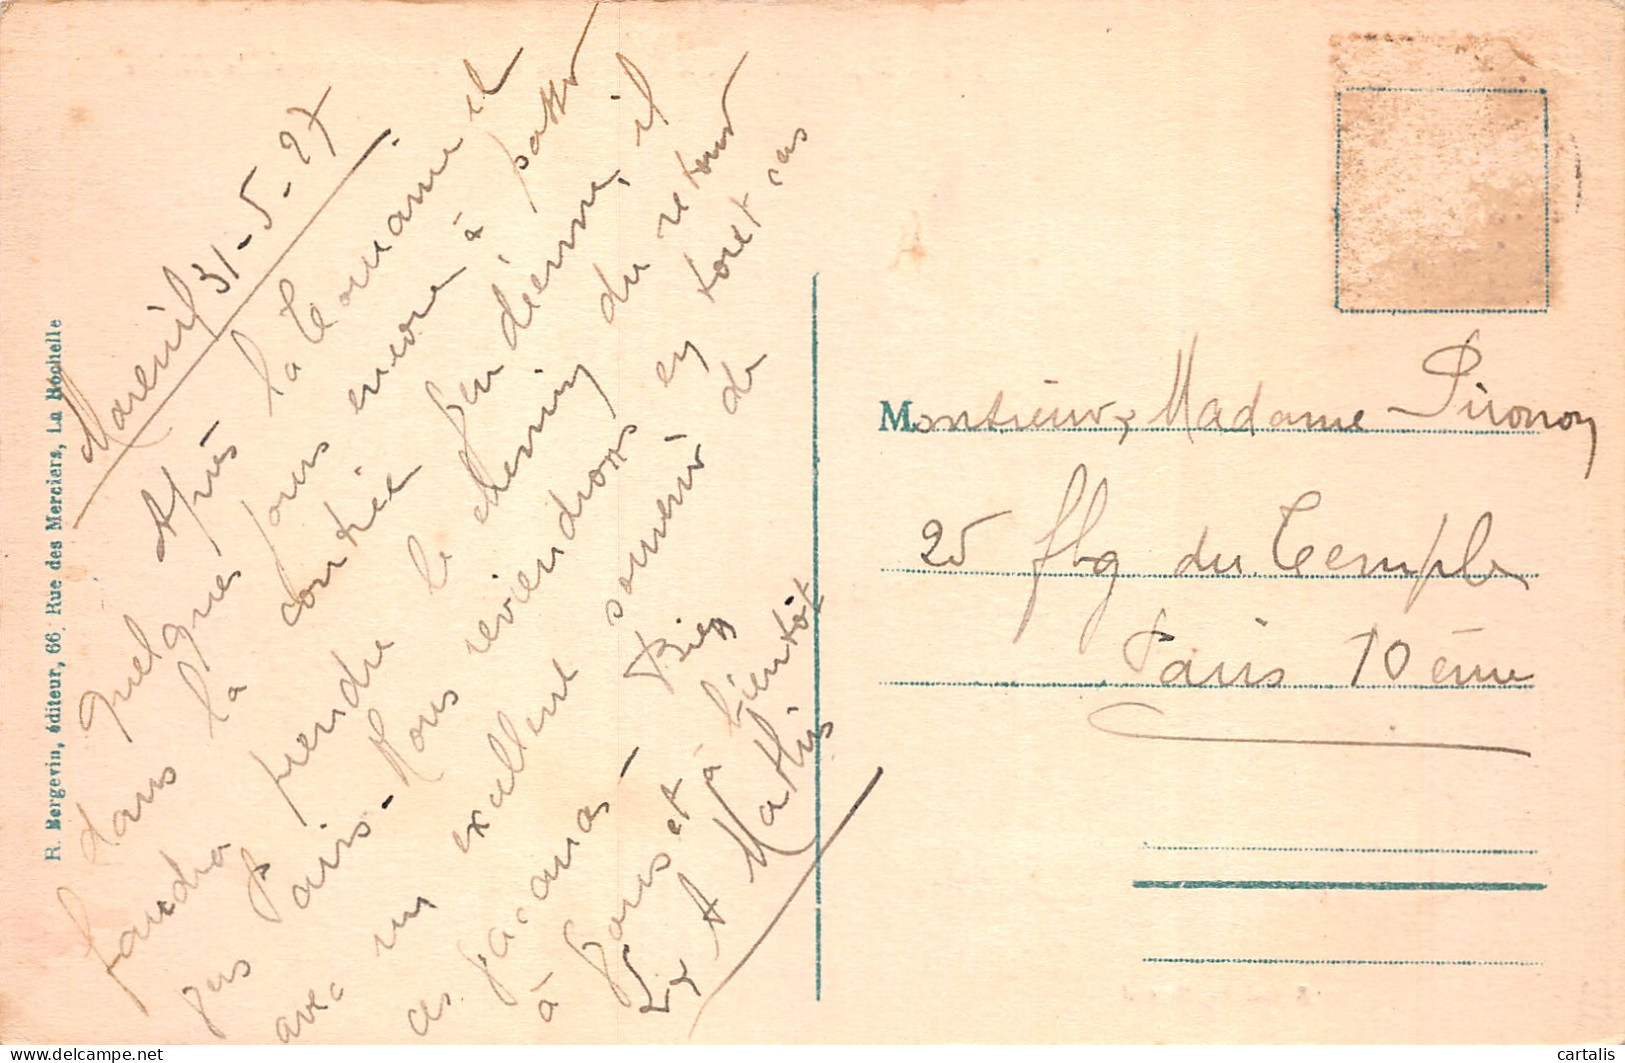 R. Bergevin, éditeur, 66, Rue des Merciers, La Rochelle
Mareuil 31-5-27
Après la Touraine et
Quelques jours encore à passer
dans la contrée Vendéenne, il
faudra prendre le chemin du retour
vers Paris - Nous reviendrons en tout cas
avec un excellent souvenir de
ces
à
Bien
à
et à bientôt
A Mathis
Monsieur, Madame
25 fbg du Temple
Paris 10ème
cartalis
delcampe.net